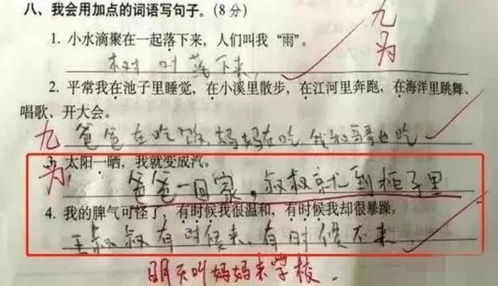 八、我会用加点的词语写句子。（8分）
九
为
1. 小水滴聚在一起落下来，人们叫我“雨”。
树叶落下来
2. 平常我在池子里睡觉，在小溪里散步，在江河里奔跑，在海洋里跳舞、
唱歌、开大会。
九 爸爸在吃饭 妈妈在吃 我和哥哥也吃
为
太阳一晒，我就变成汽。
爸爸一回家，叔叔就到柜子里
4. 我的脾气可怪了，有时候我很温和，有时候我却很暴躁。
王叔叔有时候来，有时候不来
明天叫妈妈来学校.